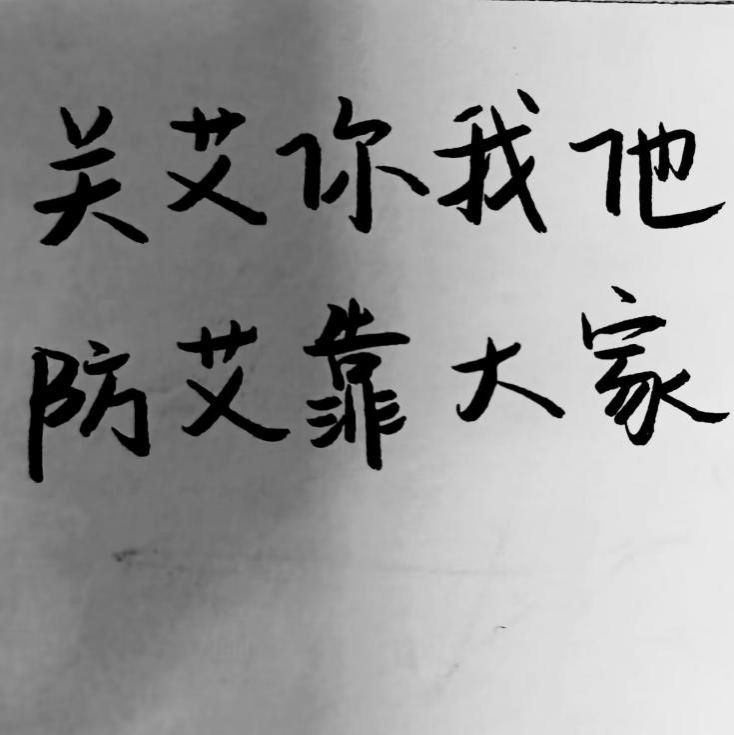 关艾你我他
防艾靠大家